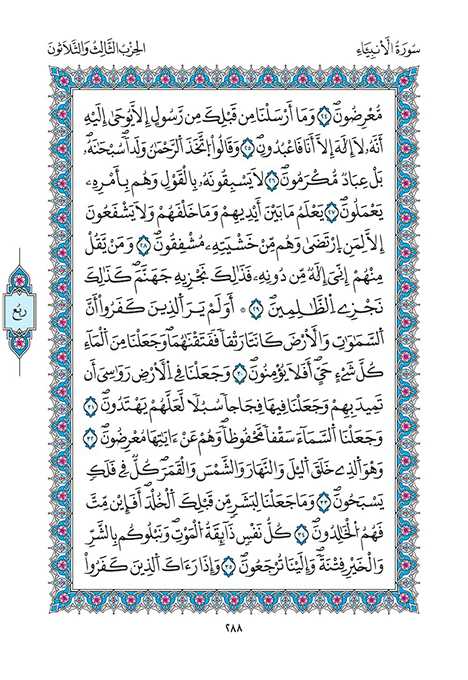 سُورَةُ الْأَنبِيَاءِ
الحِزْبُ الثَّالِثُ وَالثَّلَاثُونَ
مُّعْرِضُونَ ٢٤ وَمَا أَرْسَلْنَا مِن قَبْلِكَ مِن رَّسُولٍ إِلَّا يُوحَىٰ إِلَيْهِ
أَنَّهُۥ لَا إِلَٰهَ إِلَّا أَنَا فَاعْبُدُونِ ٢٥ وَقَالُوا۟ اتَّخَذَ الرَّحْمَٰنُ وَلَدًا سُبْحَٰنَهُۥ
بَلْ عِبَادٌ مُّكْرَمُونَ ٢٦ لَا يَسْبِقُونَهُۥ بِالْقَوْلِ وَهُم بِأَمْرِهِۦ
يَعْمَلُونَ ٢٧ يَعْلَمُ مَا بَيْنَ أَيْدِيهِمْ وَمَا خَلْفَهُمْ وَلَا يَشْفَعُونَ
إِلَّا لِمَنِ ارْتَضَىٰ وَهُم مِّنْ خَشْيَتِهِۦ مُشْفِقُونَ ٢٨ وَمَنْ يَقُلْ
مِنْهُمْ إِنِّيَ إِلَٰهٌ مِّن دُونِهِۦ فَذَٰلِكَ نَجْزِيهِ جَهَنَّمَ كَذَٰلِكَ
نَجْزِي الظَّٰلِمِينَ ٢٩ ۞ أَوَلَمْ يَرَ الَّذِينَ كَفَرُوا أَنَّ
السَّمَٰوَٰتِ وَالْأَرْضَ كَانَتَا رَتْقًا فَفَتَقْنَٰهُمَا وَجَعَلْنَا مِنَ الْمَاءِ
كُلَّ شَيْءٍ حَيٍّ أَفَلَا يُؤْمِنُونَ ٣٠ وَجَعَلْنَا فِي الْأَرْضِ رَوَٰسِيَ أَن
تَمِيدَ بِهِمْ وَجَعَلْنَا فِيهَا فِجَاجًا سُبُلًا لَّعَلَّهُمْ يَهْتَدُونَ ٣١
وَجَعَلْنَا السَّمَاءَ سَقْفًا مَّحْفُوظًا وَهُمْ عَنْ ءَايَٰتِهَا مُعْرِضُونَ ٣٢
وَهُوَ الَّذِي خَلَقَ اللَّيْلَ وَالنَّهَارَ وَالشَّمْسَ وَالْقَمَرَ كُلٌّ فِي فَلَكٍ
يَسْبَحُونَ ٣٣ وَمَا جَعَلْنَا لِبَشَرٍ مِّن قَبْلِكَ الْخُلْدَ أَفَإِيْن مِّتَّ
فَهُمُ الْخَٰلِدُونَ ٣٤ كُلُّ نَفْسٍ ذَائِقَةُ الْمَوْتِ وَنَبْلُوكُم بِالشَّرِّ
وَالْخَيْرِ فِتْنَةً وَإِلَيْنَا تُرْجَعُونَ ٣٥ وَإِذَا رَءَاكَ الَّذِينَ كَفَرُوا
ربع
٢٨٨